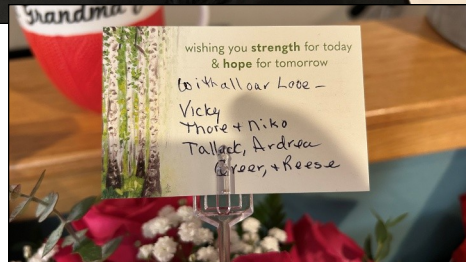 Grandma
wishing you strength for today
& hope for tomorrow
with all our Love -
Vicky
Thore + Niko
Tallack, Ardrea
Greer, + Reese